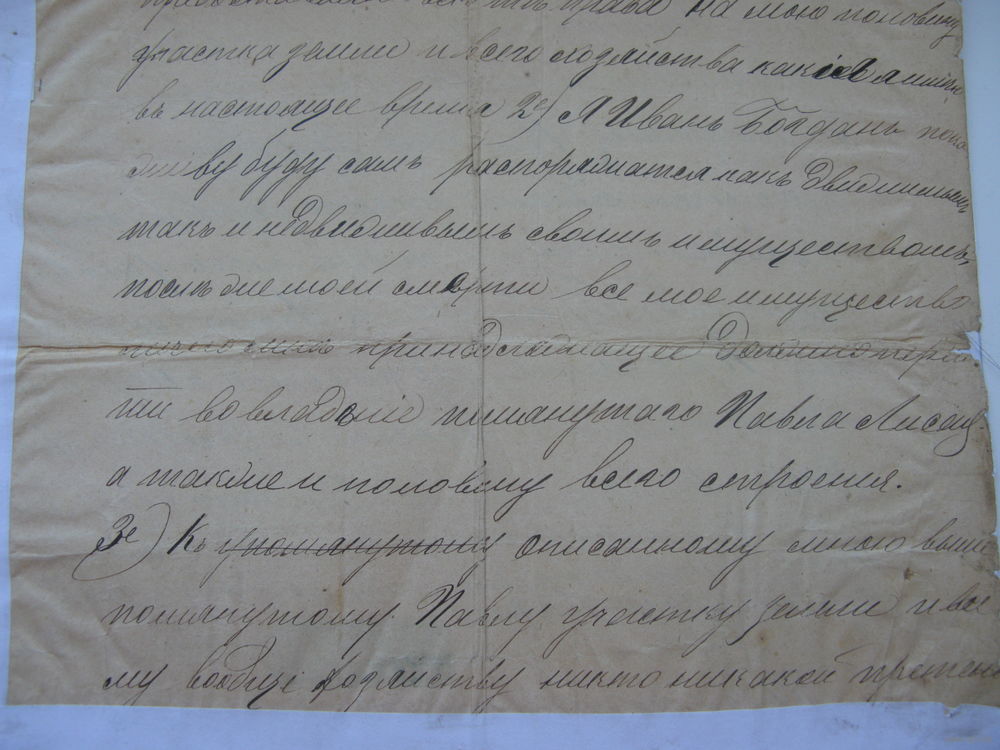 права на мою половину
участка земли и всего хозяйства какія я имѣю
въ настоящее время 2е) Я Иванъ Богданъ пока
живу буду самъ распоряжатся какъ движимымъ
такъ и недвижимымъ своимъ имуществомъ,
послѣ же моей смерти все мое имущество
принадлежащее должно перей
ти во владѣніе помянутаго Павла Лисац
а также и половину всего строения.
3е) Къ упомянутому описанному мною выше
помянутому Павлу участку земли и все
му вообще хозяйству никто никакой претен